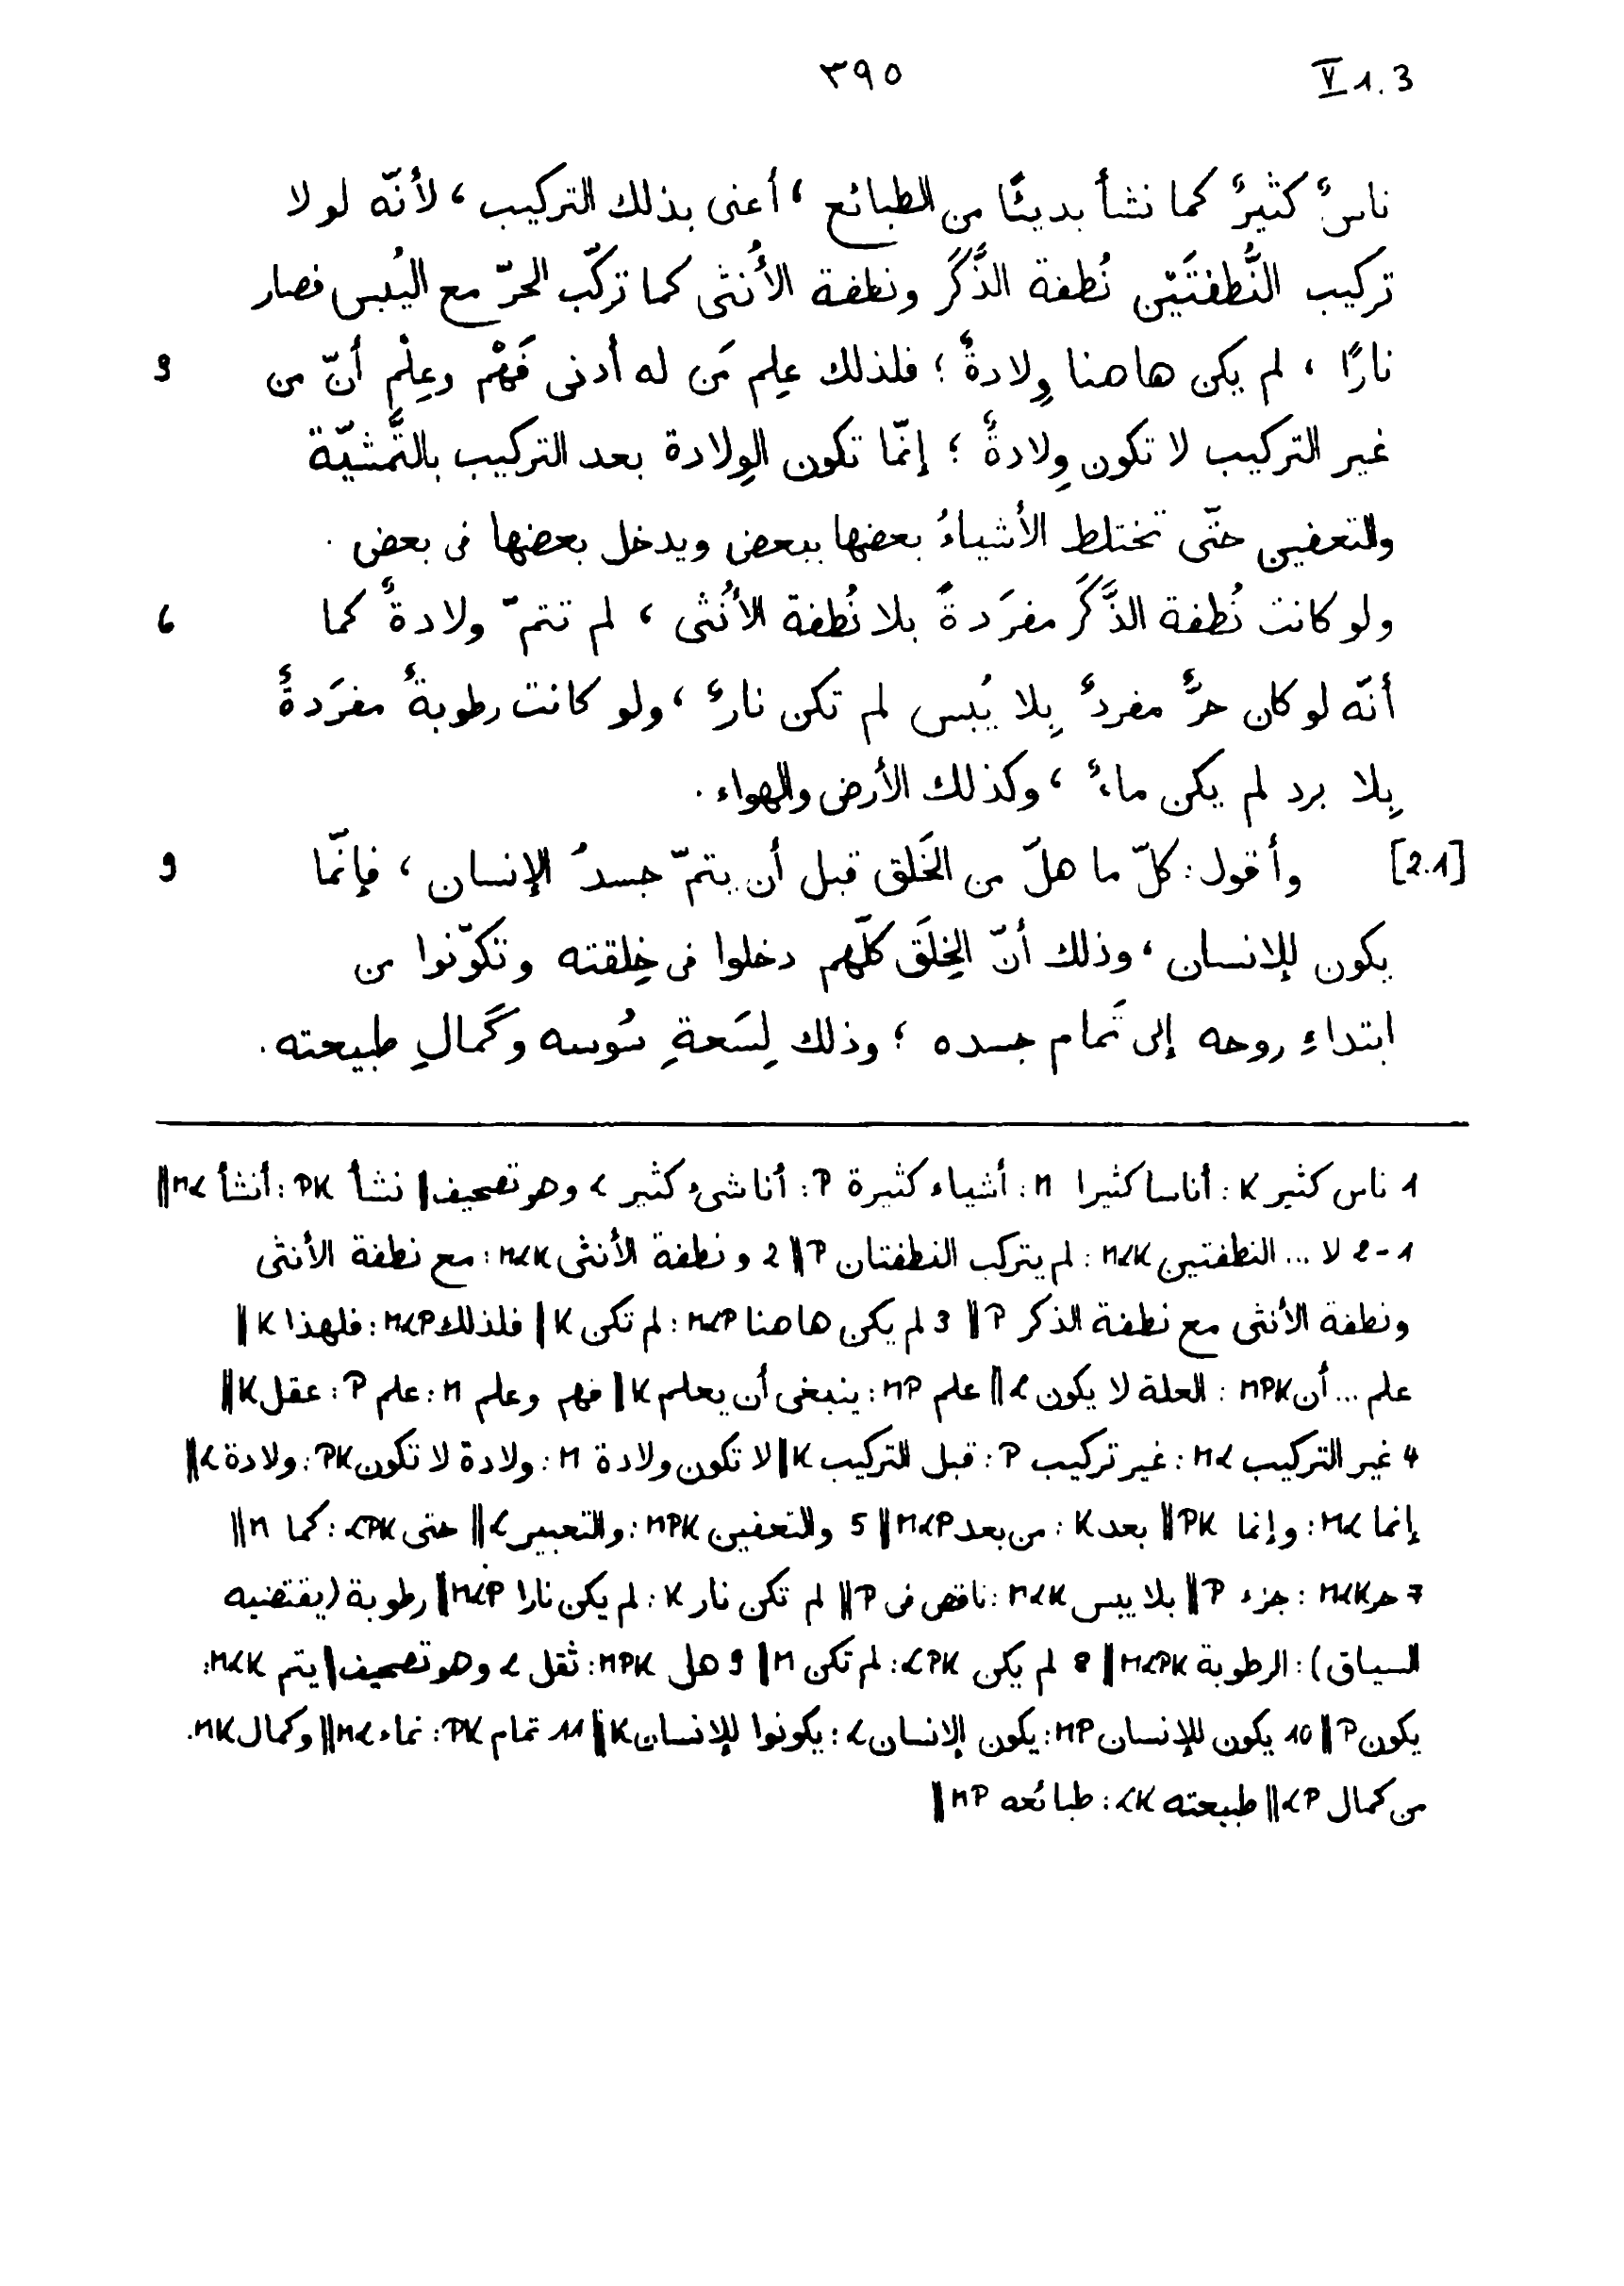 ٣٩٥ V 1.3
ناسٌ كثيرٌ كما نشأ بديئًا من الطبائع ، أعنى بذلك التركيب ، لأنّه لو لا
تركيب النُّطفتَيْن نُطفة الذَّكَر ونطفة الأُنثى كما تركّب الحرّ مع اليُبس فصار
نارًا ، لم يكن هاهنا وِلادةٌ ؛ فلذلك علِم مَن له أدنى فَهْم وعِلْم أنّ من 3
غير التركيب لا تكون وِلادةٌ ؛ إنّما تكون الوِلادة بعد التركيب بالتَّمشيّة
والتعفين حتّى تختلط الأشياءُ بعضها ببعض ويدخل بعضها فى بعض .
ولو كانت نُطفة الذَّكَر مفرَدةً بلا نُطفة الأُنثى ، لم تتمّ ولادةٌ كما 6
أنّه لو كان حرٌّ مفردٌ بِلا يُبس لم تكن نارٌ ، ولو كانت رطوبةٌ مفرَدةٌ
بِلا برد لم يكن ماءٌ ، وكذلك الأرض والهواء .
[2.1] وأقول : كلّ ما هلّ من الخَلق قبل أن يتمّ جسدُ الإنسان ، فإنّما 9
يكون للإنسان ، وذلك أنّ الخِلَق كلّهم دخلوا فى خِلقته وتكوّنوا من
ابتداءِ روحه إلى تَمام جسده ؛ وذلك لِسَعةِ سُوسه وكَمالِ طبيعته .
1 ناس كثير K : أناسا كثيرا M : أشياء كثيرة P : أنا شىء كثير L وهو تصحيف | نشأ PK : أنشأ ML ||
1-2 لا ... النطفتين MLK : لم يتركب النطفتان P || 2 ونطفة الأنثى MLK : مع نطفة الأنثى
ونطفة الأنثى مع نطفة الذكر P || 3 لم يكن هاهنا MLP : لم تكن K | فلذلك MLP : فلهذا K ||
علم ... أن MPK : العلة لا يكون L || علم MP : ينبغى أن يعلم K | فهم وعلم M : علم P : عقل K ||
4 غير التركيب ML : غير تركيب P : قبل التركيب K | لا تكون ولادة M : ولادة لا تكون PK : ولادة L ||
إنما ML : وإنما PK || بعد K : من بعد MLP || 5 والتعفين MPK : والتعبير L || حتى LPK : كما M ||
7 حر MLK : جزء P || بلا يبس MLK : ناقص فى P || لم تكن نار K : لم يكن نارا MLP || رطوبة (يقتضيه
السياق) : الرطوبة MLPK || 8 لم يكن LPK : لم تكن M || 9 هل MPK : ثقل L وهو تصحيف | يتم MLK :
يكون P || 10 يكون للإنسان MP : يكون الإنسان L : يكونوا للإنسان K || 11 تمام PK : نماء ML || وكمال MK .
من كمال LP || طبيعته LK : طبائعه MP ||